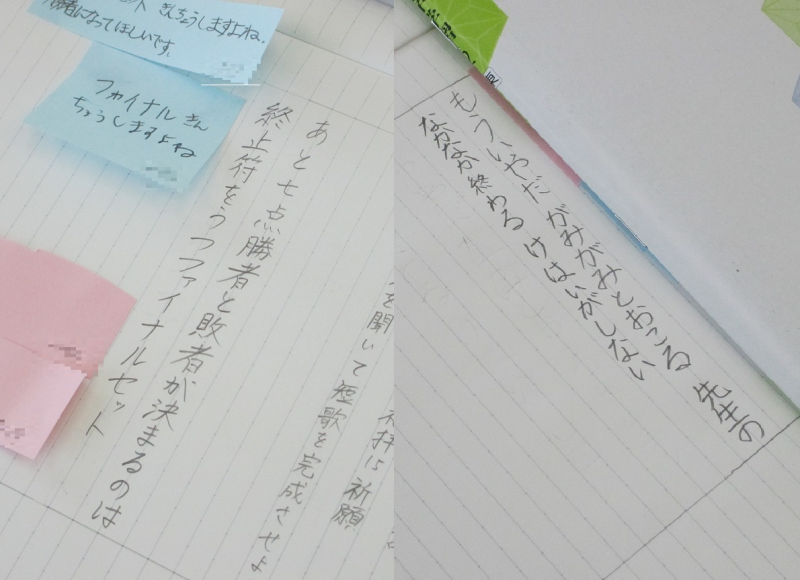 きんちょうしますよね.
者になってほしいです。
ファイナルきん
ちょうしますよね
を開いて短歌を完成させよ
祈願
あと七点勝者と敗者が決まるのは
終止符をうつファイナルセット
もういやだ がみがみとおこる 先生の
なかなか終わる けはいがしない